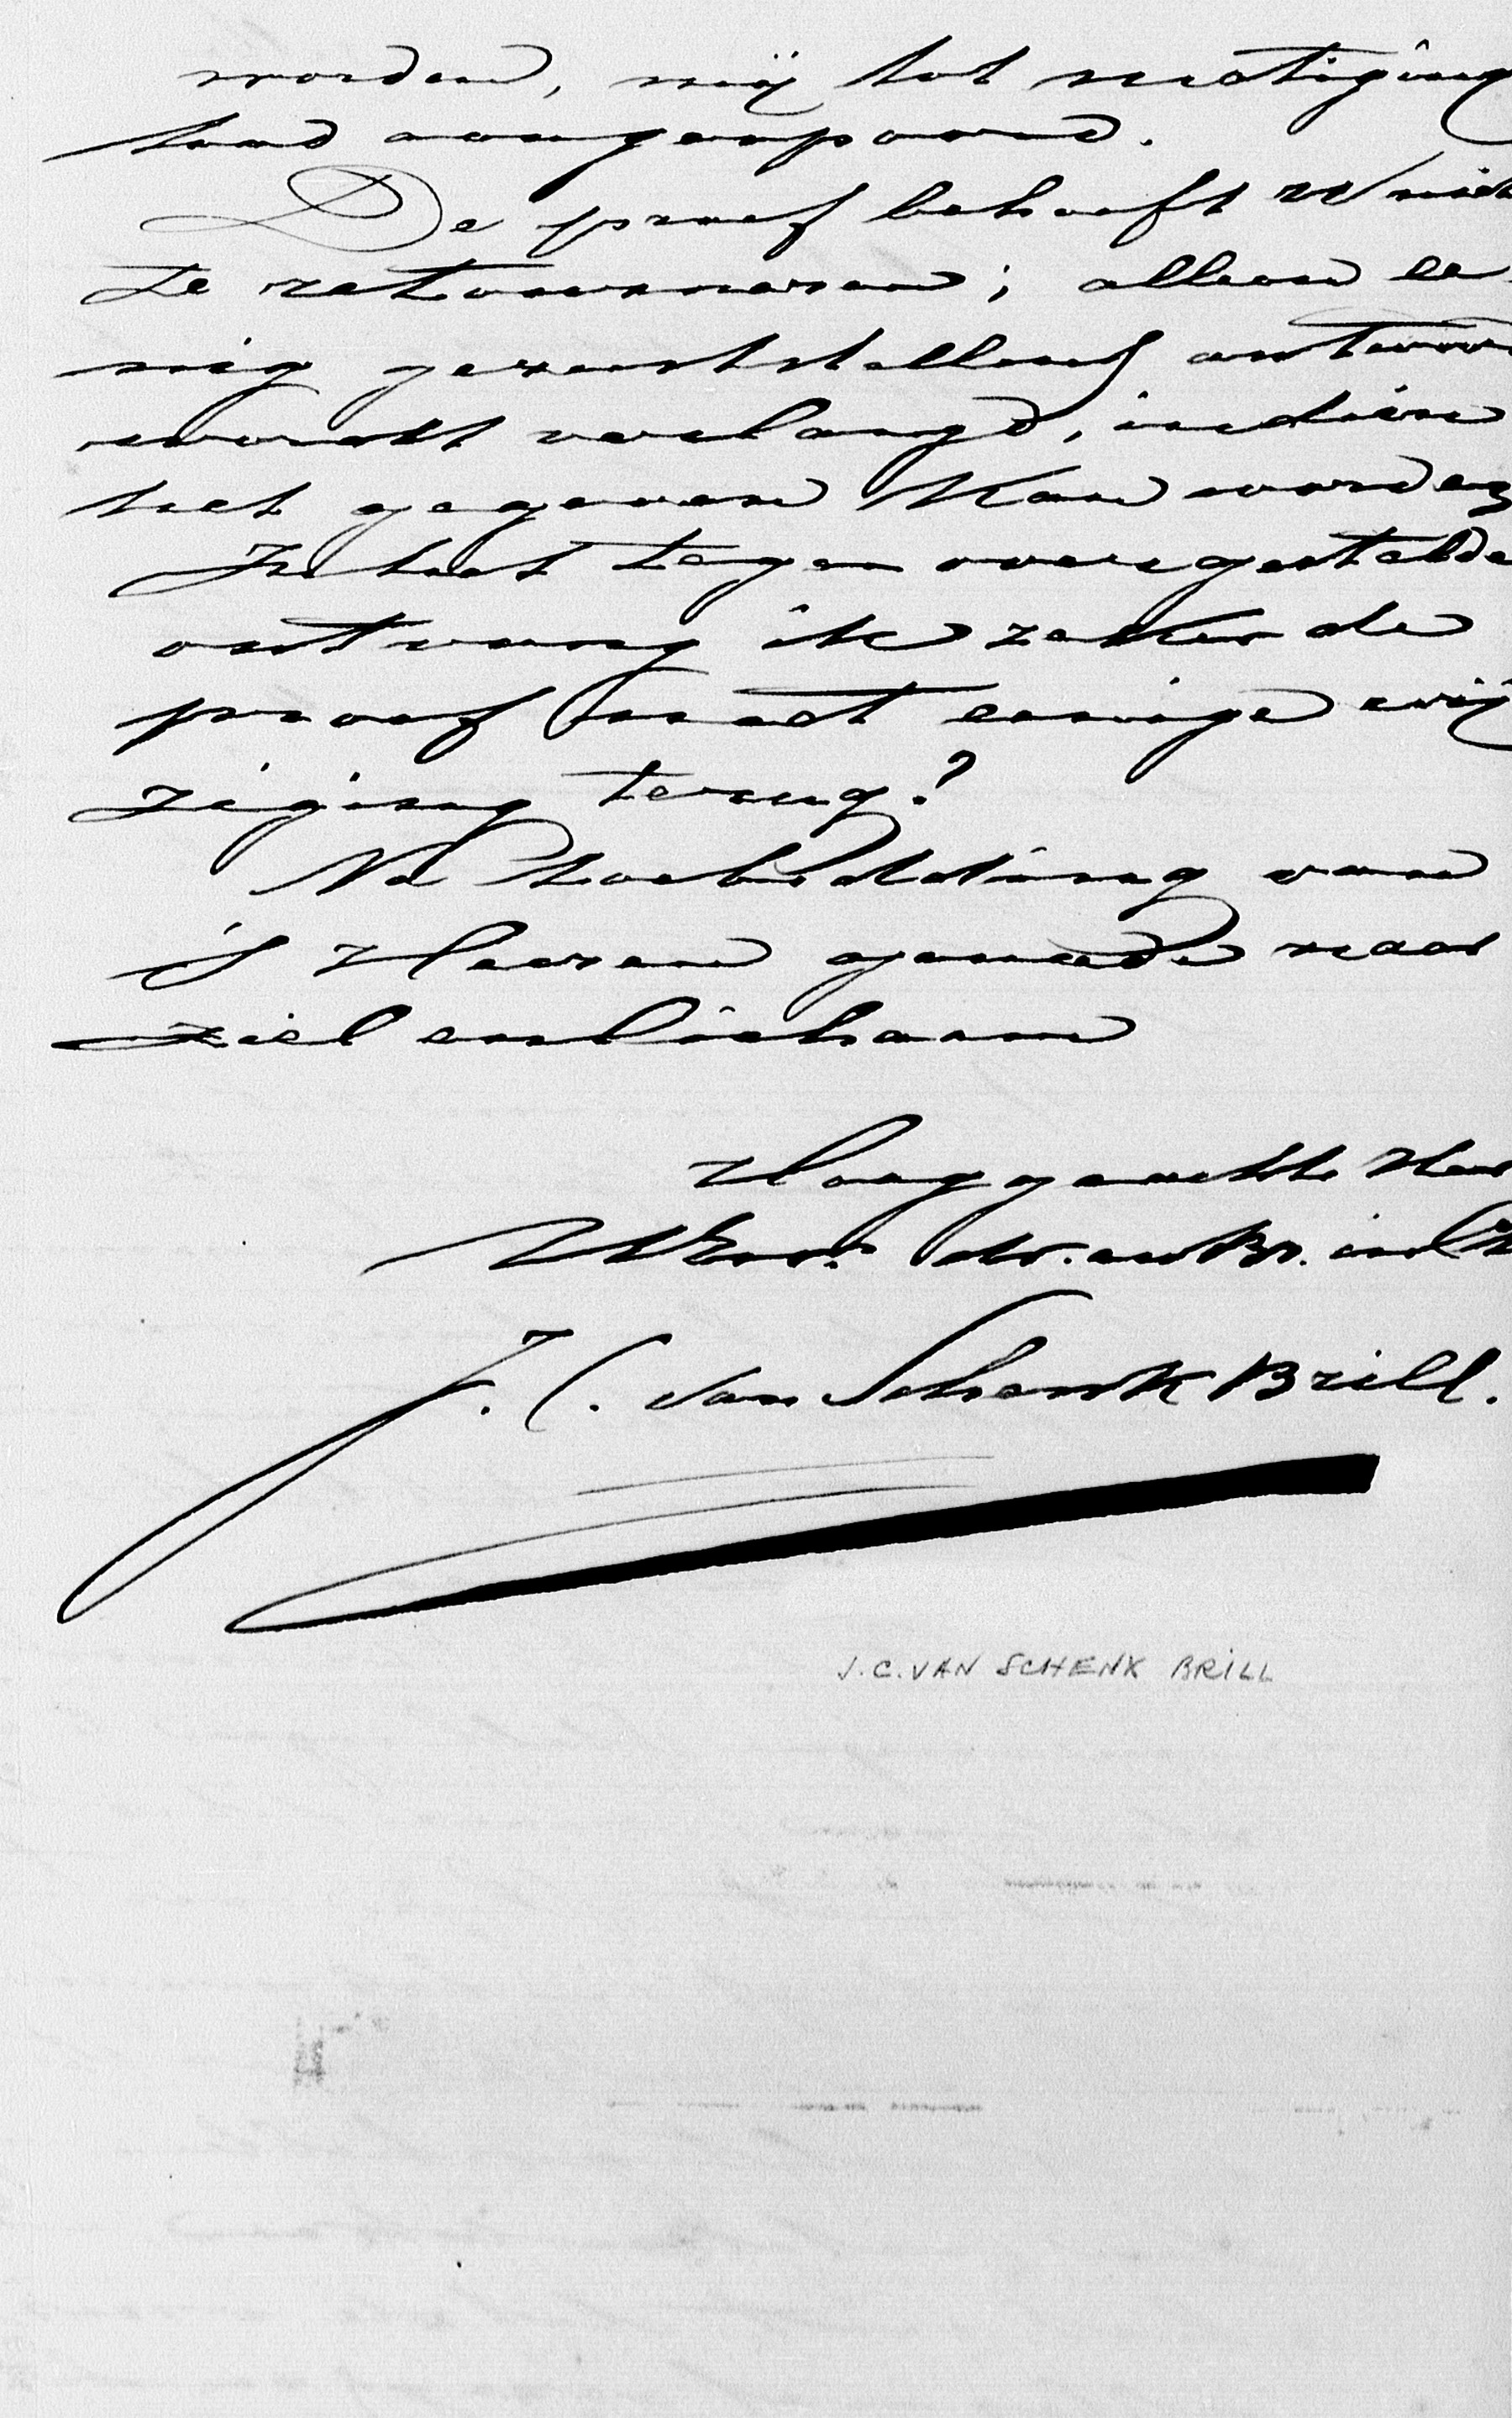 worden, mij tot matiging
had aangespoord.
De proef behoeft U niet
te retourneren; alleen ee-
nig geruststellend antwoor
wordt verlangd, indien
het gegeven kan worden
In het tegenovergestelde
ontvang ik zeker de
proef met eenige wij
ziging terug?
Na toebidding van
's Heeren genade naar
ziel en lichaam
Hooggeachte Heer
UEw. dr. en Br. in
J. C. van Schenk Brill.
J.C. VAN SCHENK BRILL